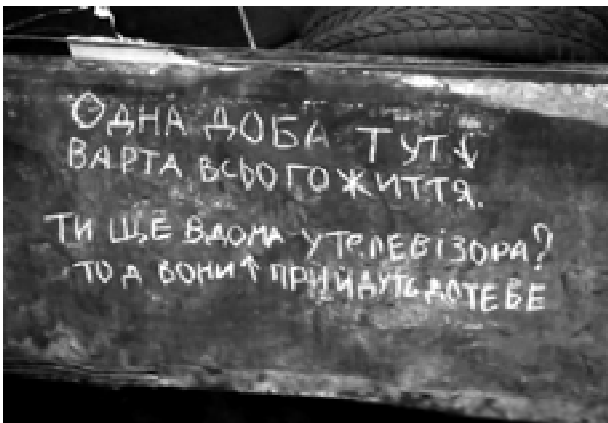 ОДНА ДОБА ТУТ↓
ВАРТА ВСЬОГО ЖИТТЯ.
ТИ ЩЕ ВДОМА У ТЕЛЕВІЗОРА?
ТО Д ВОНИ↑ ПРИЙДУТЬ ДО ТЕБЕ